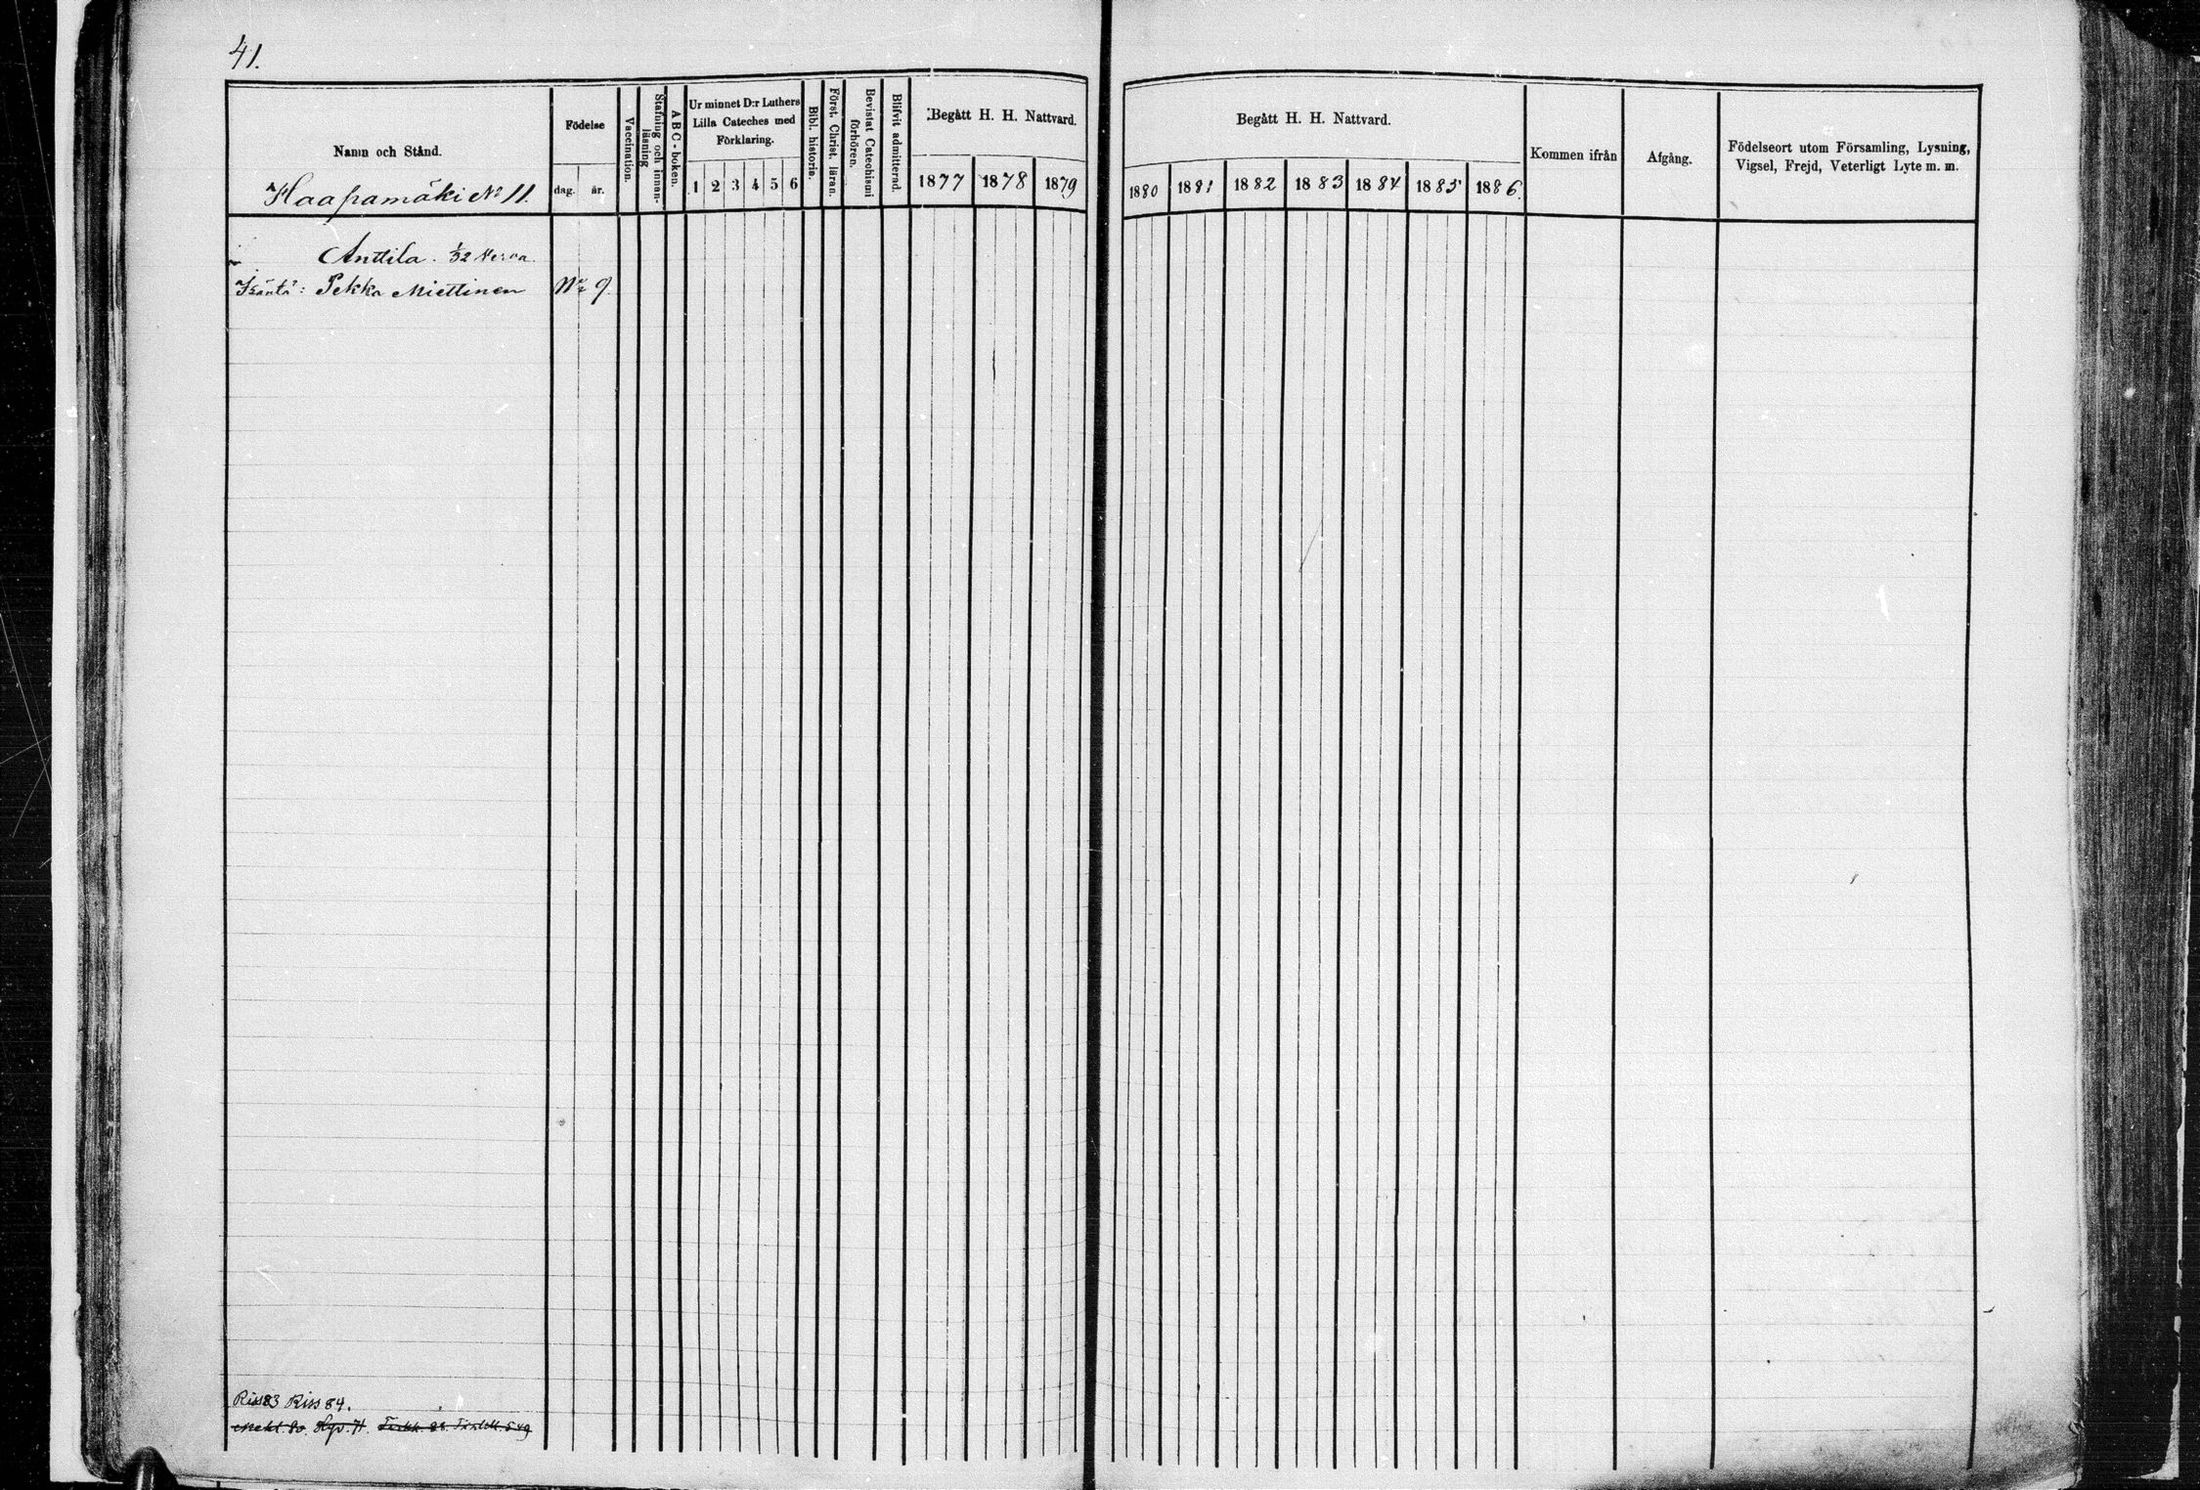 41.
Namn och Stånd.
Haapamäki No 11.
Födelse
dag. år.
Vaccination.
Stafning och innanläsning
ABC-boken.
Ur minnet D:r Luthers Lilla Cateches med Förklaring.
1 2 3 4 5 6
Bibl. historia.
Först. Christ. läran.
Bevistat Catechismi förhören.
Blifvit admitterad.
Begått H. H. Nattvard.
1877 1878 1879
Begått H. H. Nattvard.
1880 1881 1882 1883 1884 1885 1886.
Kommen ifrån
Afgång.
Födelseort utom Församling, Lysning,
Vigsel, Frejd, Veterligt Lyte m. m.
Anttila. 1/32
Isäntä: Pekka Miettinen No 9.
Riss 83 Riss 84.